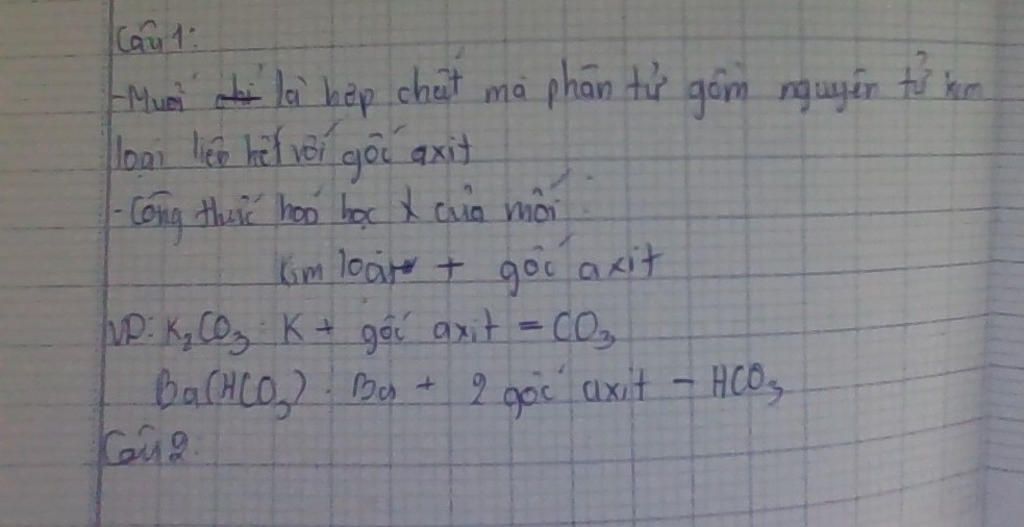 Câu 1:
- Muối là hợp chất mà phân tử gồm nguyên tử kim
loại liên kết với gốc axit
- Công thức hoá học của muối:
Kim loại + gốc axit
VD: K₂CO₃: K + gốc axit = CO₃
Ba(HCO₃): Ba + 2 gốc axit - HCO₃
Câu 2: